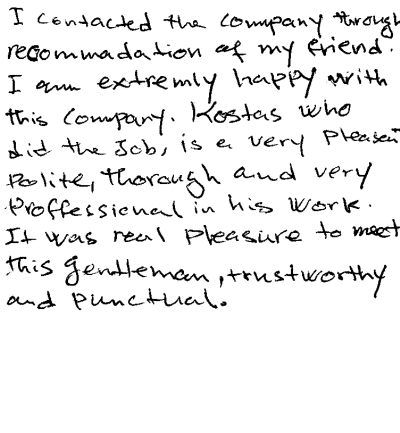 I contacted the company through
recommadation of my friend.
I am extremly happy with
this company. Kostas who
did the Job, is a very Pleasent
Polite, thorough and very
Proffessional in his work.
It was real Pleasure to meet
this gentleman, trustworthy
and punctual.